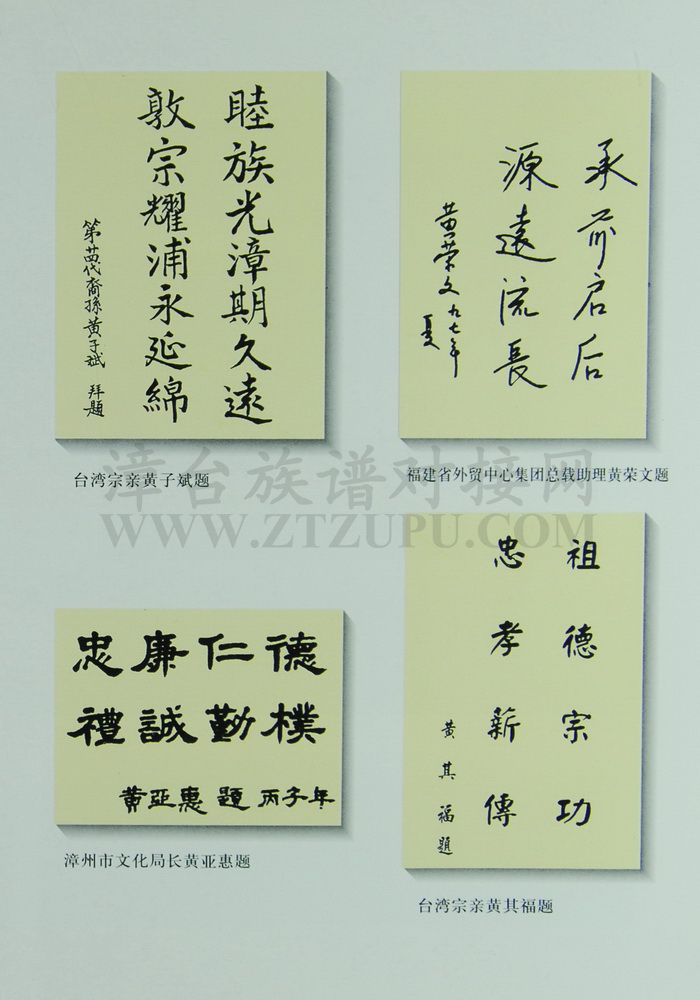 睦族光漳期久遠
敦宗耀浦永延綿
第廿四代裔孫黄子斌 拜題
台湾宗亲黄子斌题
承前启后
源遠流長
黄荣文九七年
夏
福建省外贸中心集团总载助理黄荣文题
漳台族谱对接网
WWW.ZTZUPU.COM
忠廉仁德
禮誠勤樸
黄亚惠題丙子年
漳州市文化局长黄亚惠题
祖德宗功
忠孝薪傳
黄其福題
台湾宗亲黄其福题